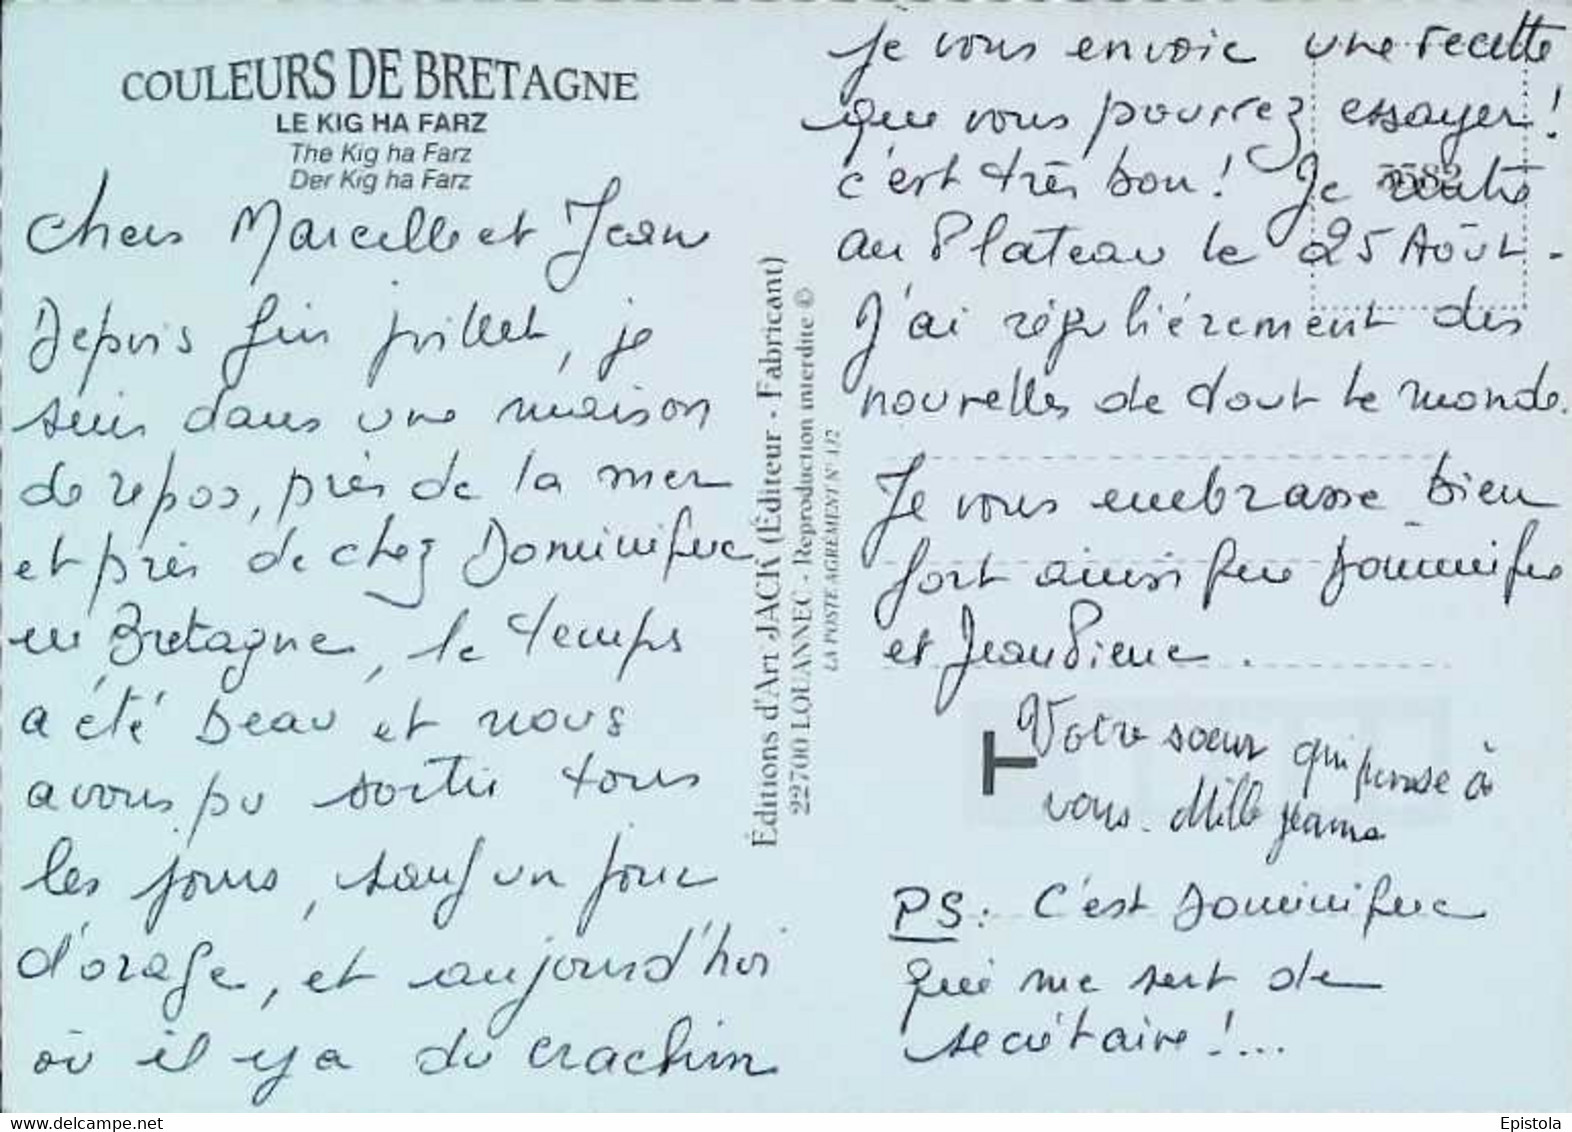 COULEURS DE BRETAGNE
LE KIG HA FARZ
The Kig ha Farz
Der Kig ha Farz
Chers Marcelle et Jean
Depuis fin juillet, je
suis dans une maison
de repos, près de la mer
et près de chez Dominique
en Bretagne, le temps
a été beau et nous
avons pu sortir tous
les jours, sauf un jour
d'orage, et aujourd'hui
où il y a du crachin
Éditions d'Art JACK (Éditeur - Fabricant)
22700 LOUANNEC - Reproduction interdite ©
LA POSTE AGREMENT N° 132
je vous envoie une recette
que vous pourrez essayer!
c'est très bon! Je rentre
au Plateau le 25 Août.
J'ai régulièrement des
nouvelles de tout le monde.
Je vous embrasse bien
fort ainsi que Dominique
et Jean Pierre.
T
Votre soeur qui pense à
vous. Mille
PS: C'est Dominique
qui me sert de
secrétaire!...
Epistola